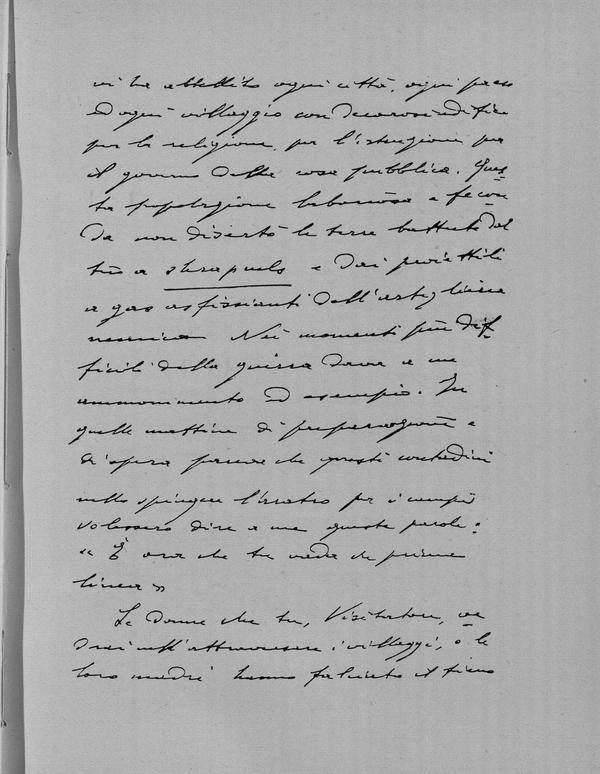 vi ha abbellito ogni città, ogni paese
ed ogni villaggio con decorosi edifici
per la religione, per l'istruzione per
il governo della cosa pubblica. Ques
ta popolazione laboriosa e fecon
da non disertò le terre battute dal
tiro a shrapnels e dai proiettili
a gas asfissianti dell'artiglieria
nemica. Nei momenti più dif
ficili della guerra dava a me
ammonimento ed esempio. In
quelle mattine di preparazione e
d'opera pareva che questi contadini
nello spingere l'aratro per i campi
volessero dire a me queste parole:
« È ora che tu vada in prima
linea »
Le donne che tu, Visitatore, ve
drai nell'attraversare i villaggi, o le
loro madri hanno falciato il fieno